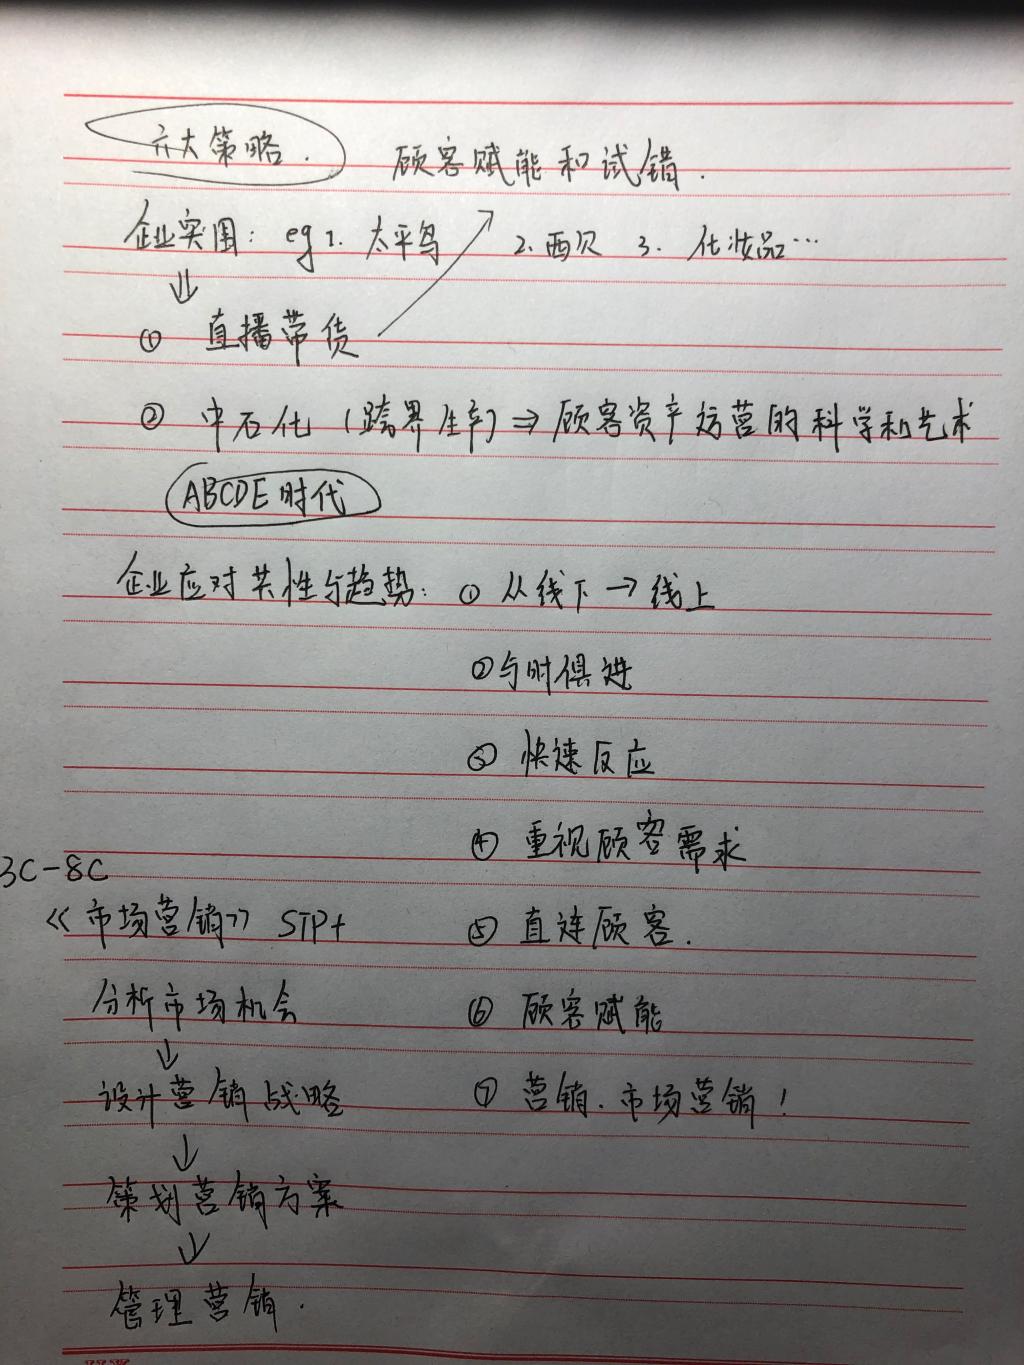 六大策略.
顾客赋能和试错.
企业突围: eg 1. 太平鸟 2. 西贝 3. 化妆品…
① 直播带货
② 中石化 (跨界生产) ⇒ 顾客资产运营的科学和艺术
ABCDE时代
企业应对共性与趋势: ① 从线下→线上
②与时俱进
③ 快速反应
④ 重视顾客需求
⑤ 直连顾客.
⑥ 顾客赋能
⑦ 营销. 市场营销!
3C-8C
《市场营销》 STP+
分析市场机会
↓
设计营销战略
↓
策划营销方案
↓
管理营销.